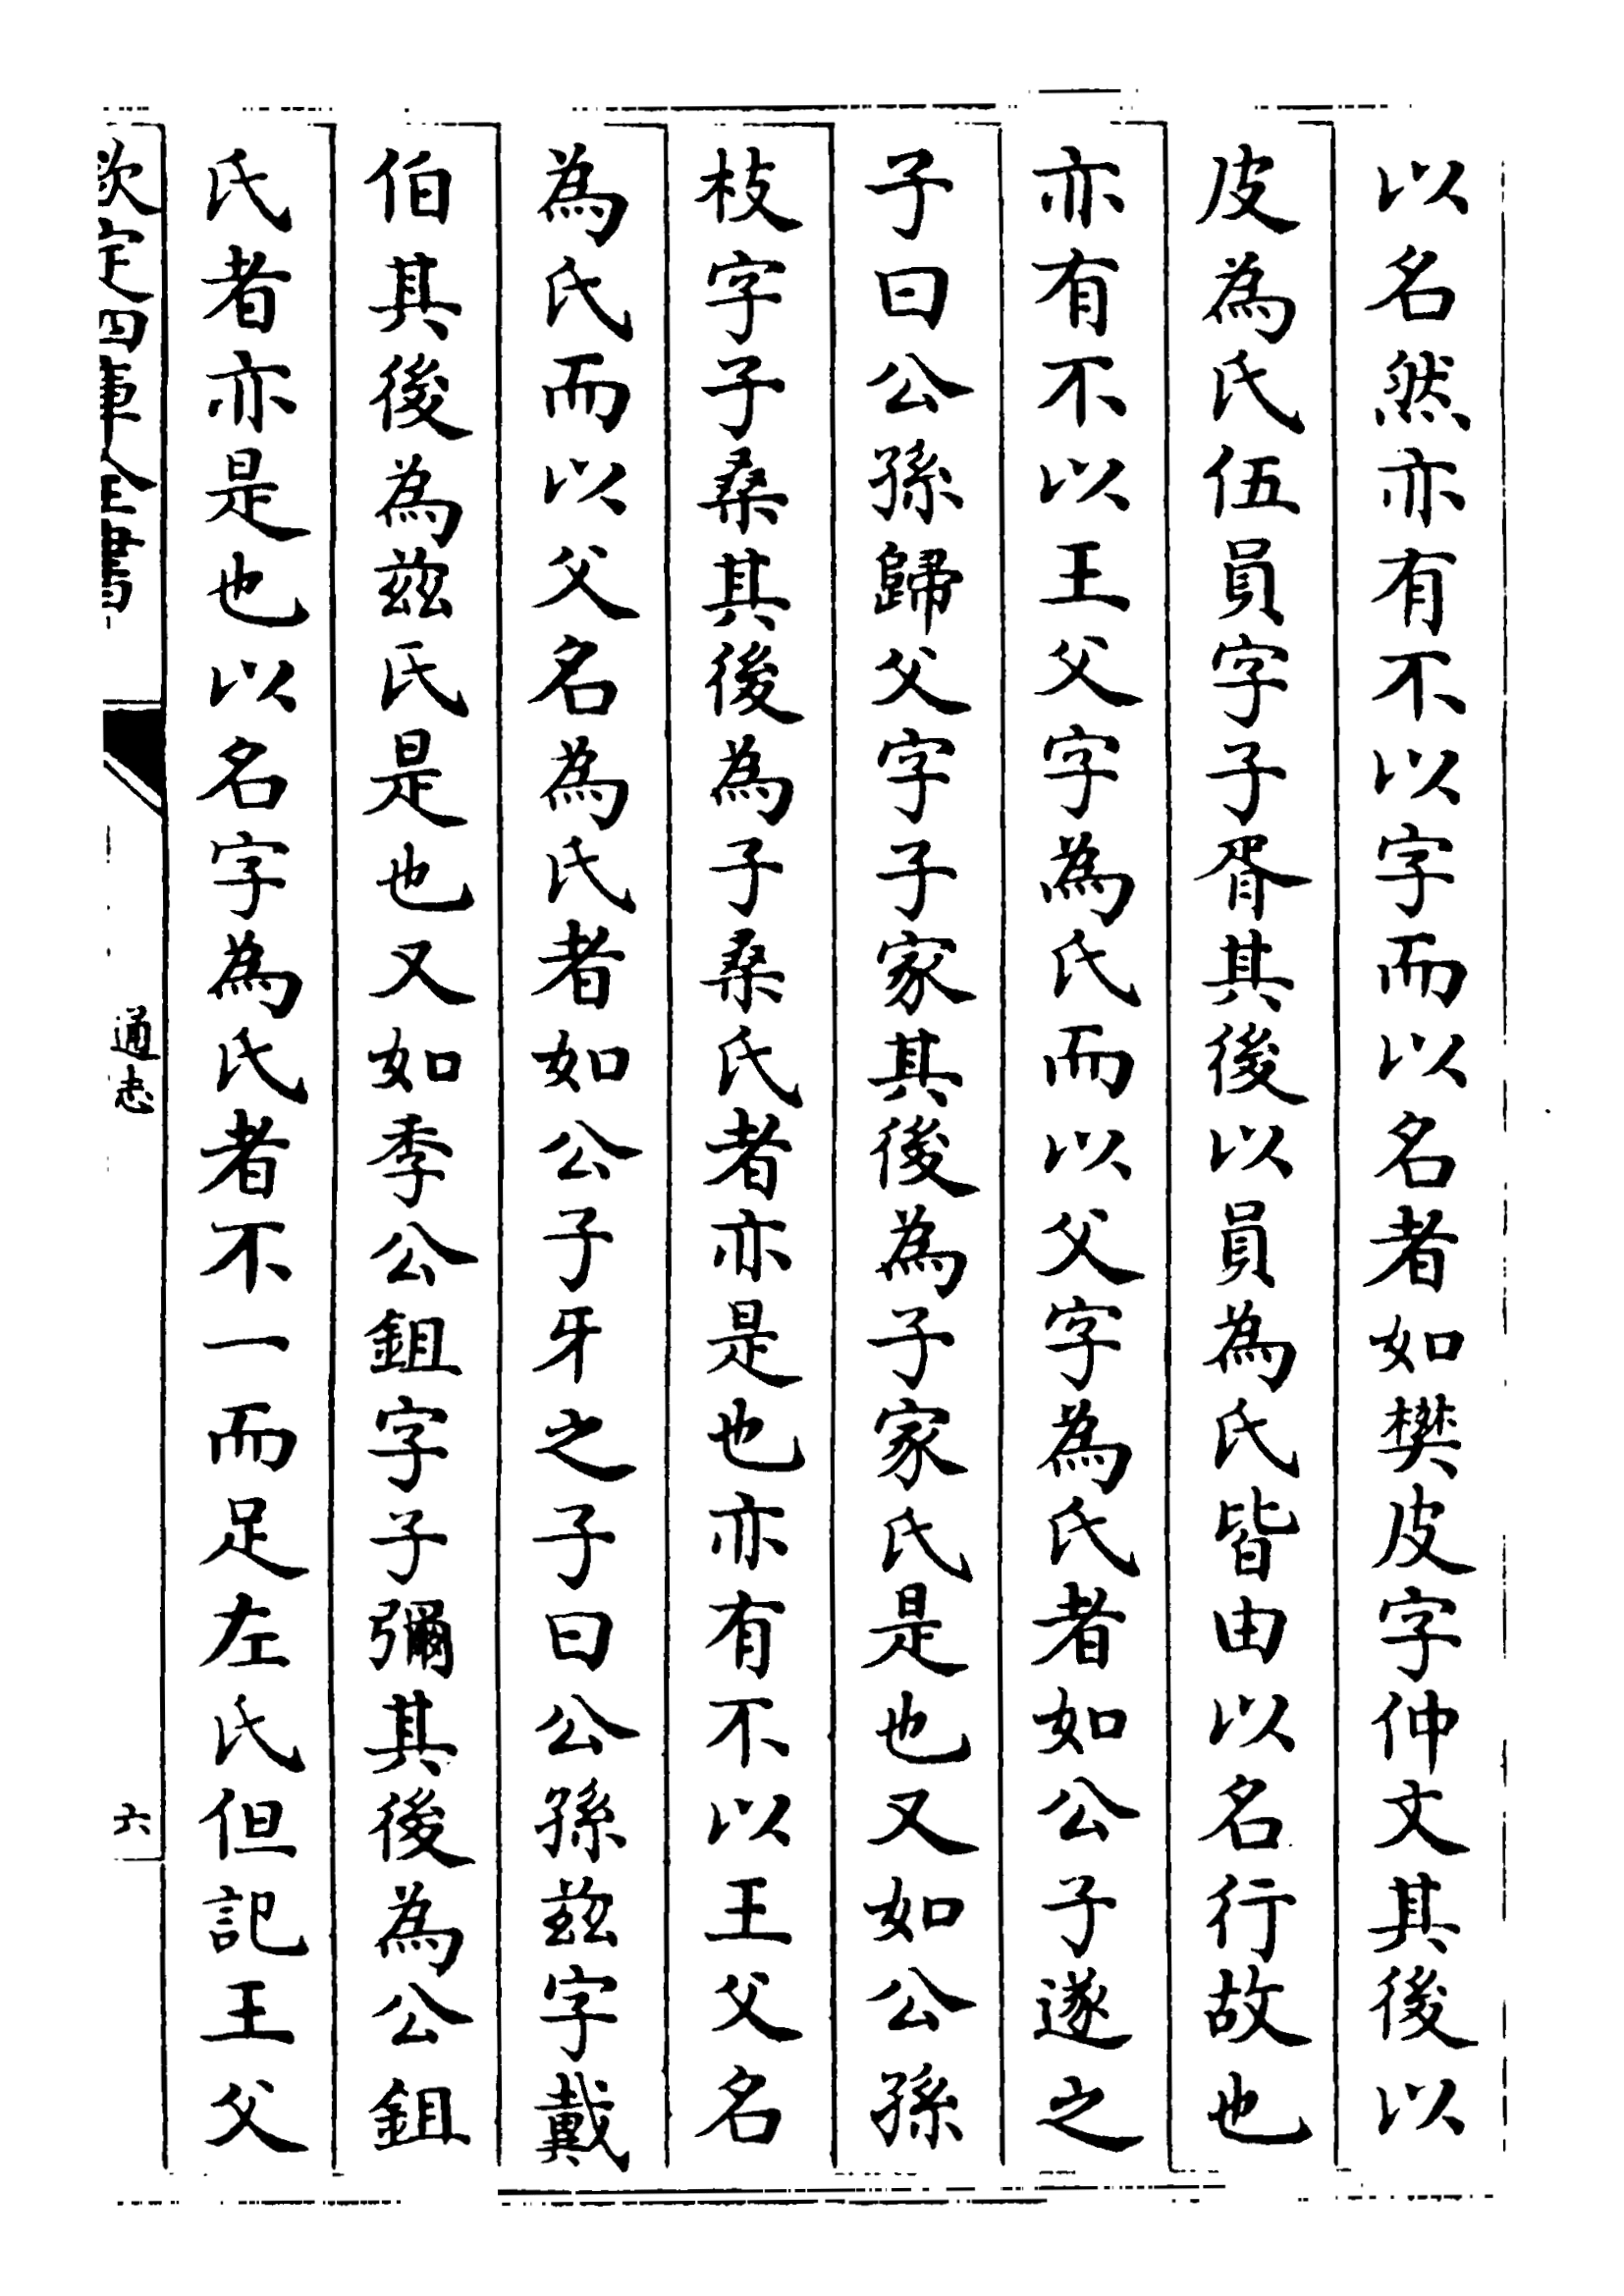 以名然亦有不以字而以名者如樊皮字仲文其後以
皮為氏伍員字子胥其後以員為氏皆由以名行故也
亦有不以王父字為氏而以父字為氏者如公子遂之
子曰公孫歸父字子家其後為子家氏是也又如公孫
枝字子桑其後為子桑氏者亦是也亦有不以王父名
為氏而以父名為氏者如公子牙之子曰公孫茲字戴
伯其後為茲氏是也又如季公鉏字子彌其後為公鉏
氏者亦是也以名字為氏者不一而足左氏但記王父
欽定四庫全書
通志
六